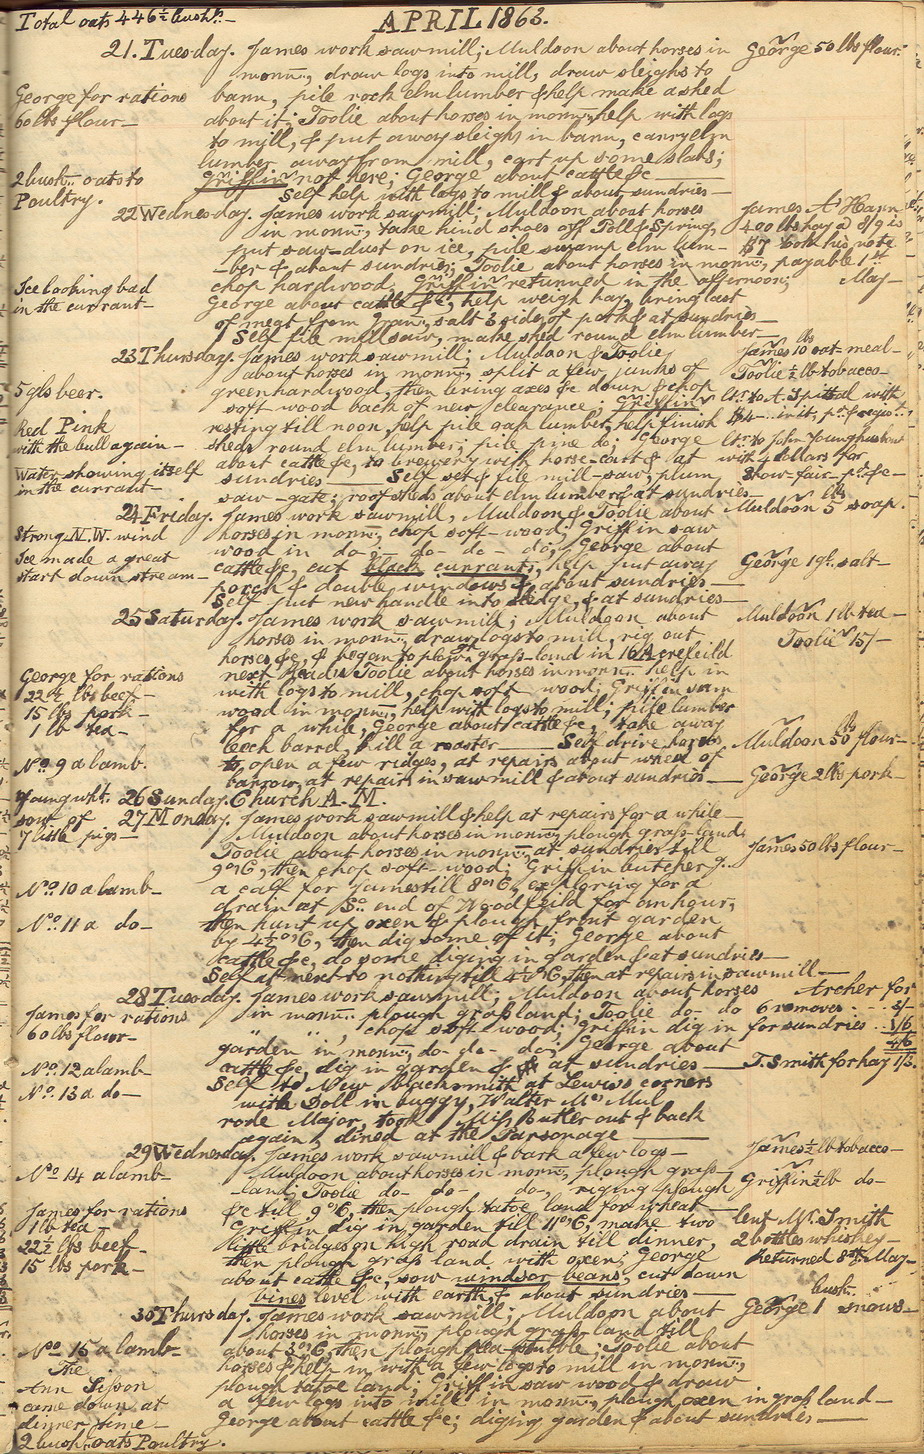 Total oats 446½ bushls.
APRIL 1863.
21. Tuesday. James work sawmill; Muldoon about horses in
George 50 lbs flour.
morng, draw logs into mill, draw sleighs to
George for rations
60 lbs flour
barn, pile rock elm lumber & help make a shed
about it; Toolie about horses in morng, help with logs
to mill, & put away sleighs in barn, carry elm
lumber away from mill, cart up some slabs;
2 bush. oats to
Poultry.
Griffin not here; George about cattle &c
Self help with logs to mill & about sundries
22 Wednesday. James work sawmill; Muldoon about horses
James A. Hann
in morng, take hind shoes off Poll & Spring,
400 lbs hay @ 8/9 is
put saw-dust on ice, pile swamp elm lum-
$7 took his note
-ber & about sundries; Toolie about horses in morng,
payable 1st
May
Ice looking bad
in the currant
chop hardwood, Griffin returned in the afternoon;
George about cattle &c, help weigh hay, bring last
of meat from Gran., salt 3 sides of pork & at sundries
Self file mill saw, make shed round elm lumber
23 Thursday. James work sawmill; Muldoon & Toolie
James 10 lbs oat-meal
about horses in morng, split a few junks of
Toolie ½ lb tobacco
5 gls beer.
greenhardwood, then bring axes &c down & chop
Lr. to A. Spittal with
soft wood back of new clearance; Griffin
$4 in it, pd. & regisd.
Red Pink
with the bull again
resting till noon, help pile gap lumber, help finish
sheds round elm lumber, pile pine do; George
Lr. to John Younghusbant
about cattle &c, to brewery with horse-cart & at
with 4 dollars for
Water showing itself
in the currant
sundries Self set & file mill-saw, plum
Show-fair pd. &c
saw-gate; roof sheds about elm lumber & at sundries
24 Friday. James work sawmill, Muldoon & Toolie about
Muldoon 5 lbs soap.
Strong N.W. wind
Ice made a great
start down stream
horses in morng, chop soft-wood; Griffin saw
wood in do; do- do- do; George about
cattle &c, cut black currants, help put away
George 1 qt. salt
porch & double windows & about sundries
Self put new handle into sledge, & at sundries
25 Saturday. James work sawmill; Muldoon about
Muldoon 1 lb tea
horses in morng, draw logs to mill, rig out
Toolie 15/-
horses &c, & began to plough grass-land in 16 Acrefeild
George for rations
22½ lbs beef
15 lbs pork
1 lb tea
next Reads Toolie about horses in morng help in
with logs to mill, chop soft wood; Griffin saw
wood in morng, help with logs to mill; pile lumber
for a while; George about cattle &c, take away
leech barrel, kill a rooster Self drive horses
Muldoon 50 lbs flour
No. 9 a lamb.
to, open a few ridges, at repairs about wheel of
barrow, at repairs in sawmill & about sundries
George 2 lbs pork
Young wht.
sow of
7 little pigs
26 Sunday. Church A.M.
27 Monday. James work sawmill & help at repairs for a while
Muldoon about horses in morng, plough grass-land;
Toolie about horses in morng, at sundries till
James 50 lbs flour
9 o'C, then chop soft-wood; Griffin butcherg.
No. 10 a lamb
a calf for James till 8 o'C, exploring for a
drain at So. end of Woodfeild for an hour,
No. 11 a do
then hunt up oxen & plough front garden
by 4½ o'C, then dig some of it; George about
cattle &c, do some diging in garden & at sundries
Self at next to nothing till 4½ o'C, then at repairs in sawmill
28 Tuesday. James work sawmill; Muldoon about horses
Archer for
James for rations
60 lbs flour
in morng. plough grass land; Toolie do- do
6 removes 3/-
" " chop soft-wood; Griffin dig in
for sundries 1/6
garden in morng, do- do- do; George about
4/6
No. 12 a lamb
cattle &c, dig in garden & at sundries
T. Smith for hay 1/3.
No. 13 a do
Self to New blacksmith at Lewiss corners
with Doll in buggy, Walter Mc Mul
rode Major, took Miss Butler out & back
again & dined at the Parsonage
29 Wednesday. James work sawmill & bark a few logs
James ½ lb tobacco
No 14 a lamb
Muldoon about horses in morng, plough grass-
-land; Toolie do- do- do-, riging plough
Griffin ½ lb do
James for rations
1 lb tea
22½ lbs beef
15 lbs pork
&c till 9 o'C, then plough tatoe land for wheat
Griffin dig in garden till 11 o'C, make two
lent Mr. Smith
little bridges on high road drain till dinner,
2 bottles whiskey
then plough grass land with oxen; George
Returned 8th May
about cattle &c, sow windsor beans, cut down
bines level with earth, & about sundries
30 Thursday. James work sawmill; Muldoon about
George 1 bush. snows
horses in morng, plough grass land till
No 15 a lamb
about 3 o'C, then plough pea stubble; Toolie about
The
Ann Sisson
came down at
dinner time
horses & help in with a few logs to mill in morng,
plough tatoe land; Griffin saw wood & draw
a few logs into mill in morng, plough oxen in grass land
George about cattle &c; diging garden & about sundries
2 bush. oats Poultry.